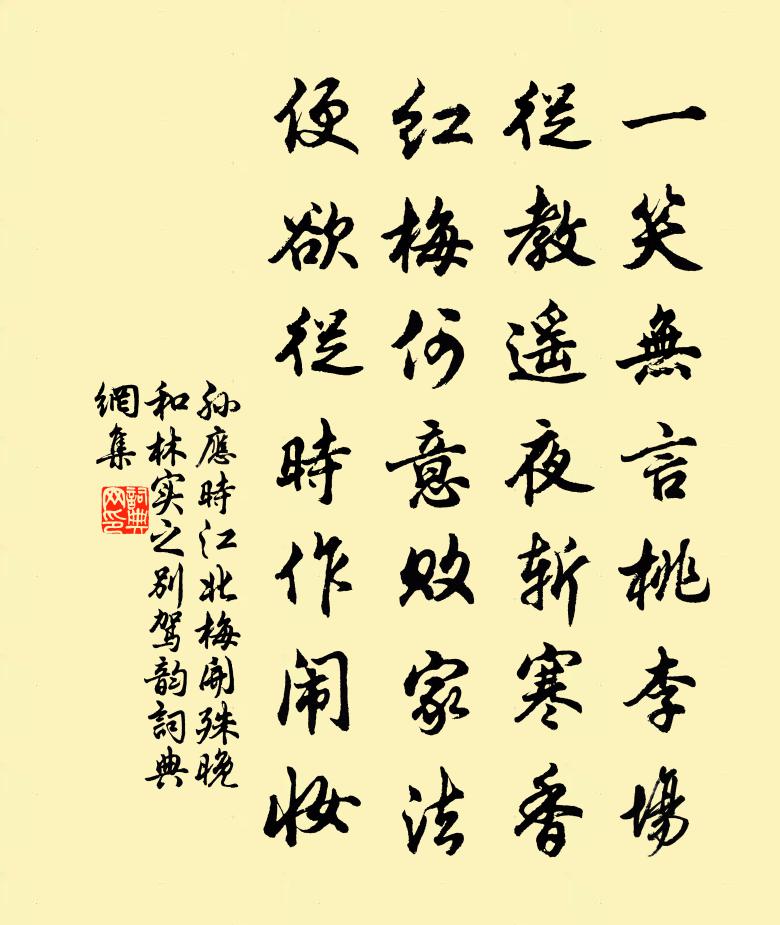 一笑無言桃李場
從教遥夜斩寒香
紅梅何意敗家法
便欲從時作闹妝
孙應時江北梅開殊晚
和林实之别駕韵詞典
網集
詞典网印